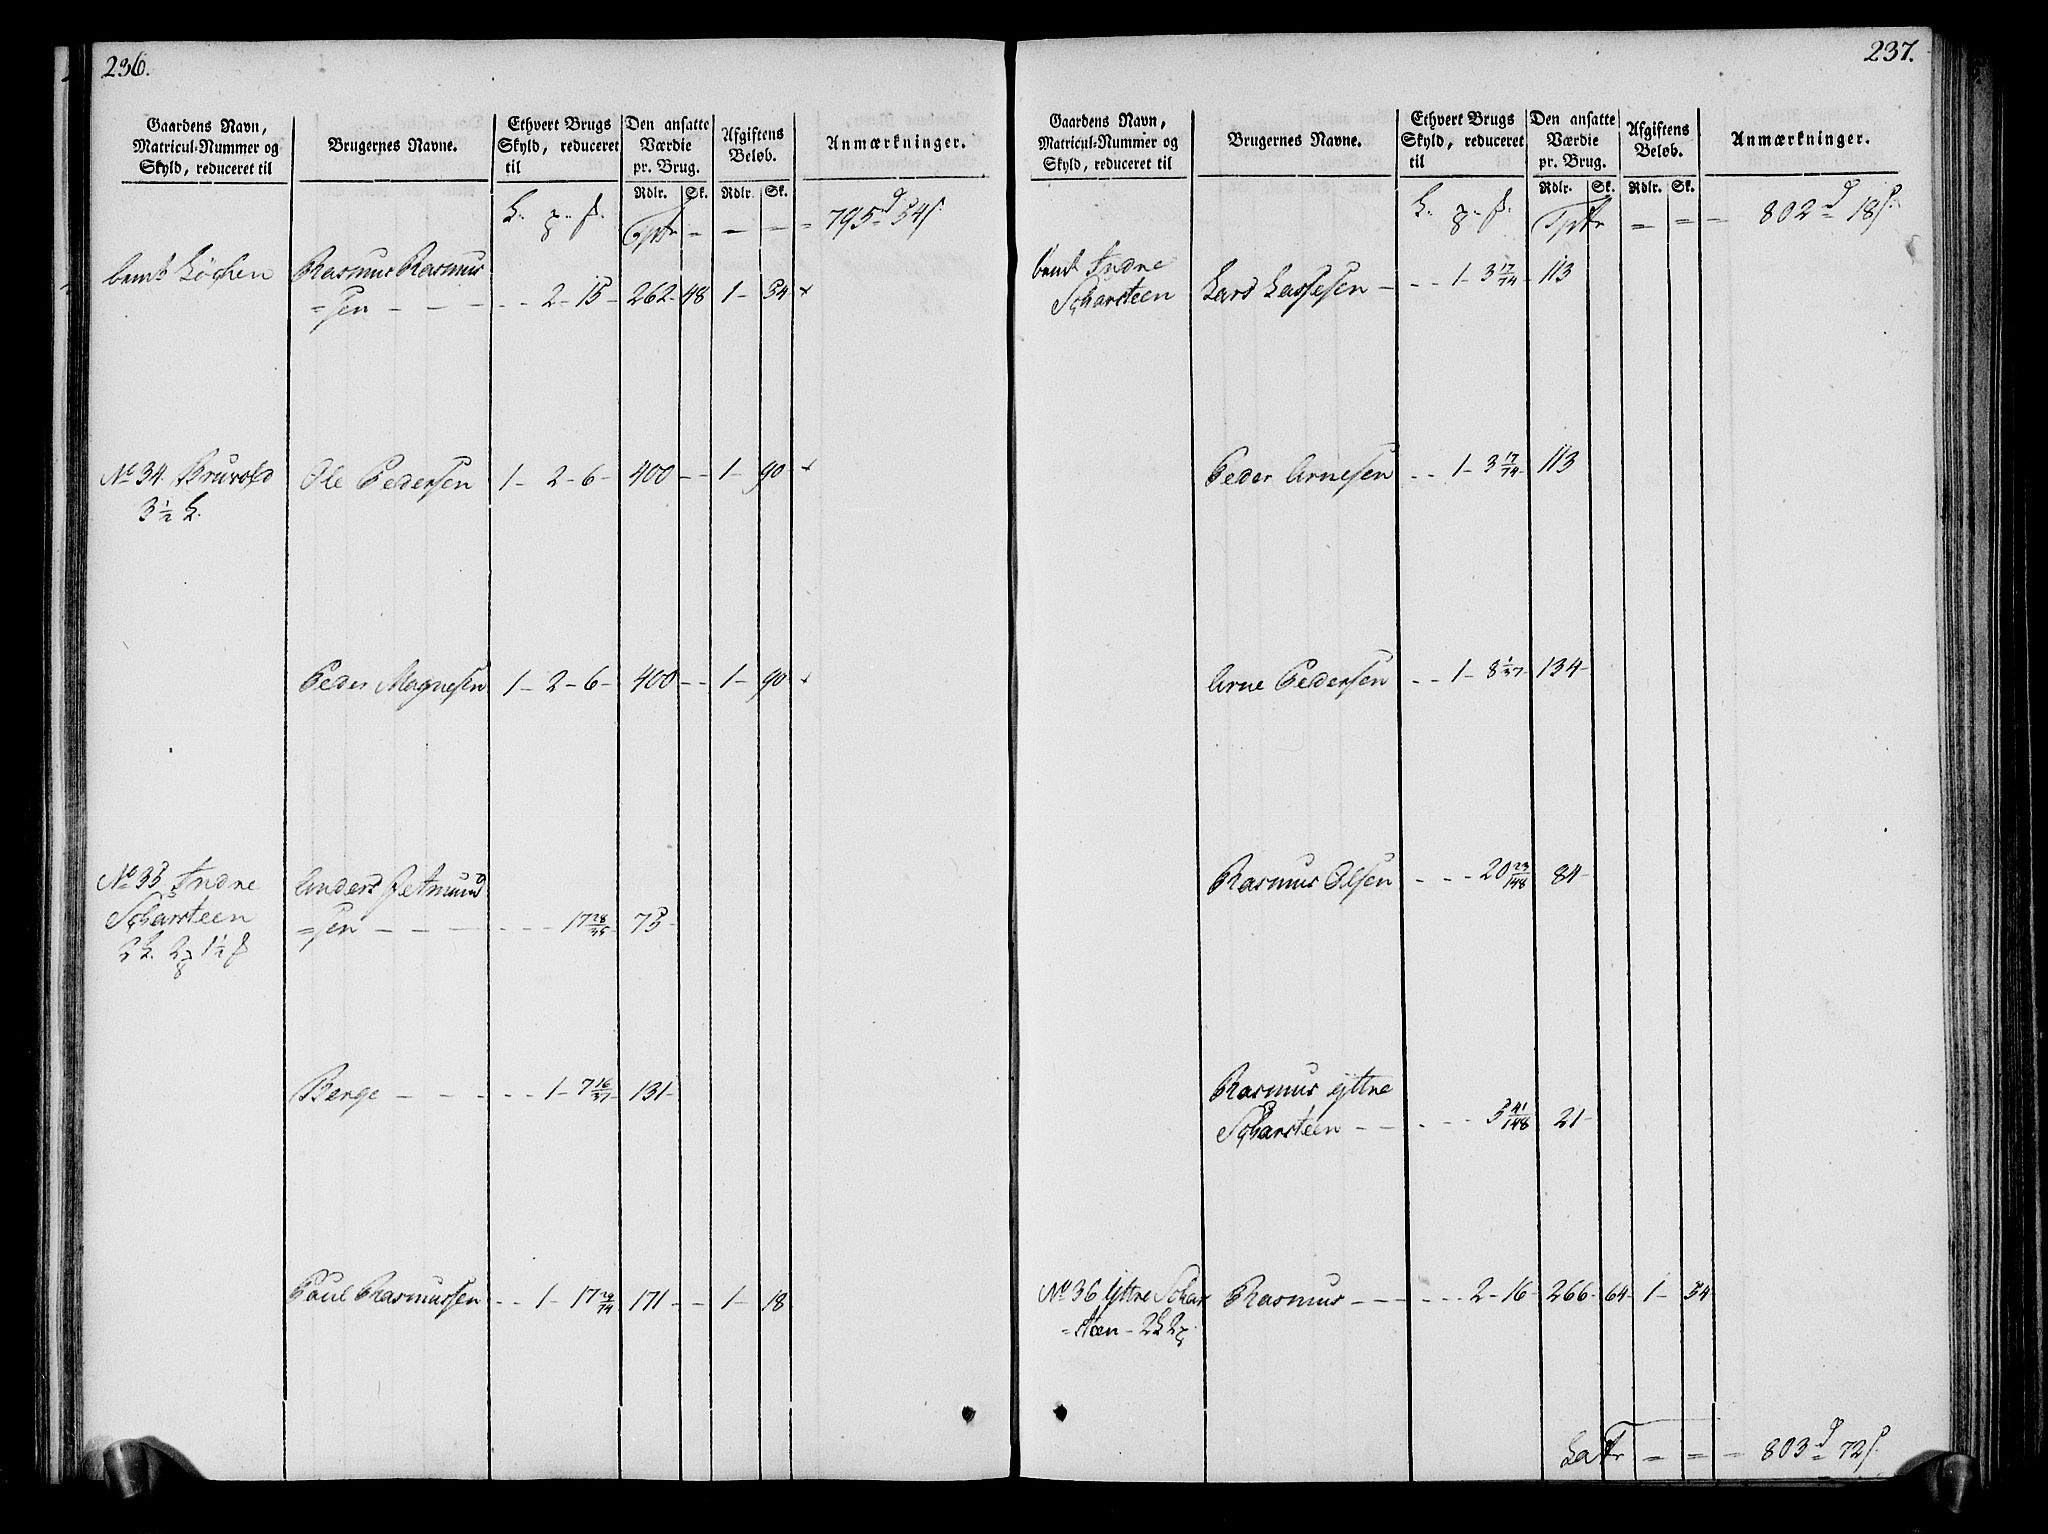 236.
Gaardens Navn, Matricul-Nummer og Skyld, reduceret til
Brugernes Navne.
Ethvert Brugs Skyld, reduceret til
Den ansatte Værdie pr. Brug.
Afgiftens Beløb.
Anmærkninger.
Rdlr. Sk. Rdlr. Sk.
Tptr - - - = 795 d 54 s.
bemt Løchen Rasmus Rasmus
=sen - - - - - 2 - 15 - 262 - 48 1 - 34 x
No 34. Bruvold Ole Pedersen 1 - 2 - 6 - 400 - - 1 - 90 x
3 1/2 L.
Peder Magnesen 1 - 2 - 6 - 400 - - 1 - 90 x
No 35 Indre Anders Jetmund
Scharsteen =sen - - - - - - 17 28/45 - 75 -
2 L. 2 1 1/2
Berge - - - - - 1 - 7 16/37 - 131 -
Poul Rasmussen - - 1 - 17 29/74 171 - - 1 - 18
237.
Gaardens Navn, Matricul-Nummer og Skyld, reduceret til
Brugernes Navne.
Ethvert Brugs Skyld, reduceret til
Den ansatte Værdie pr. Brug.
Afgiftens Beløb.
Anmærkninger.
Rdlr. Sk. Rdlr. Sk.
Tptr - = = - 802 d 18 s.
bemt Indre
Scharsteen Lars Lassesen - - - 1 - 3 17/74 - 113
Peder Arnesen - - 1 - 3 17/74 - 113
Arne Pedersen - - 1 - 8 1/37 - 134 -
Rasmus Olsen - - - 20 23/148 84 -
Rasmus Yttre
Scharsteen - - - - - 5 41/148 21 -
No 36 Yttre Schar Rasmus - - - - - 2 - 16 - 266 - 64 - 1 - 34
=steen - 2 L 2
Latr - = = - 803 d 72 s.